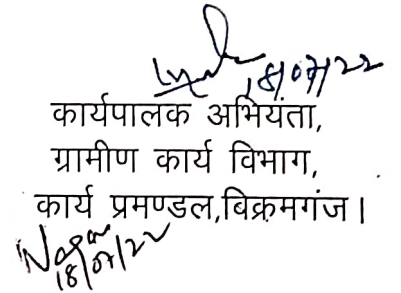 18/07/22
कार्यपालक अभियंता,
ग्रामीण कार्य विभाग,
कार्य प्रमण्डल,बिक्रमगंज।
18/07/22